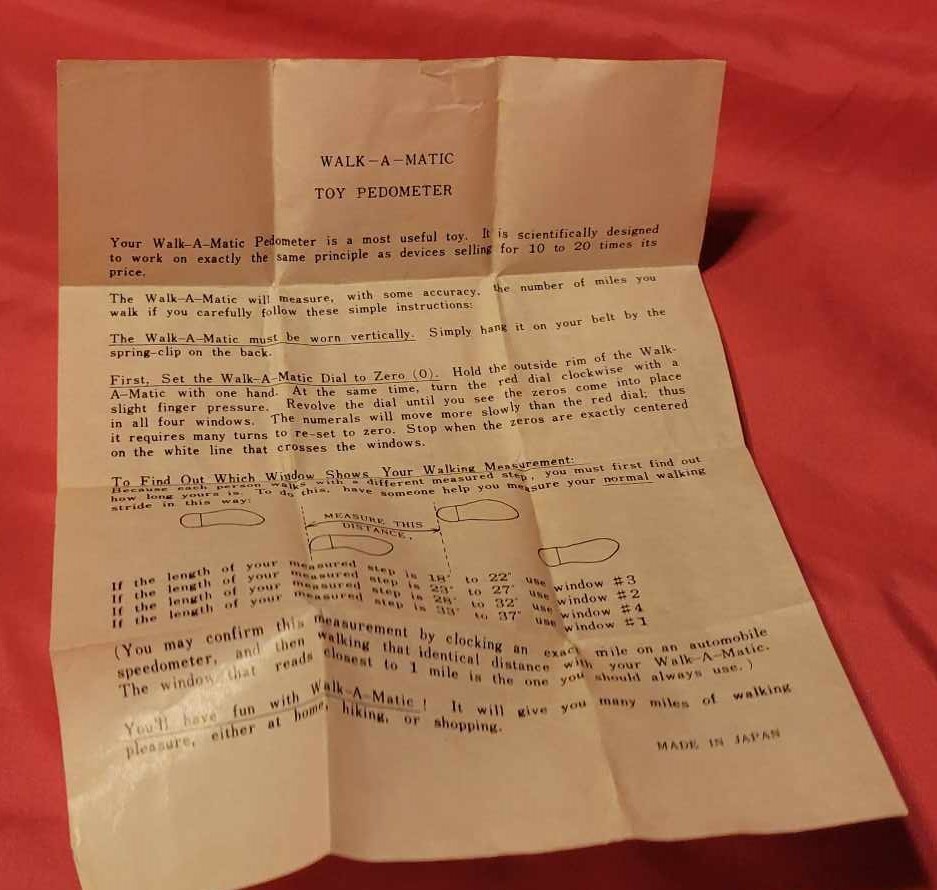 WALK-A-MATIC
TOY PEDOMETER
Your Walk-A-Matic Pedometer is a most useful toy. It is scientifically designed
to work on exactly the same principle as devices selling for 10 to 20 times its
price.
The Walk-A-Matic will measure, with some accuracy, the number of miles you
walk if you carefully follow these simple instructions:
The Walk-A-Matic must be worn vertically. Simply hang it on your belt by the
spring-clip on the back.
First, Set the Walk-A-Matic Dial to Zero (0). Hold the outside rim of the Walk-
A-Matic with one hand. At the same time, turn the red dial clockwise with a
slight finger pressure. Revolve the dial until you see the zeros come into place
in all four windows. The numerals will move more slowly than the red dial; thus
it requires many turns to re-set to zero. Stop when the zeros are exactly centered
on the white line that crosses the windows.
To Find Out Which Window Shows Your Walking Measurement:
Because each person walks with a different measured step, you must first find out
how long yours is. To do this, have someone help you measure your normal walking
stride in this way:
MEASURE THIS
DISTANCE.
If the length of your measured step is 18" to 22" use window #3
If the length of your measured step is 23" to 27" use window #2
If the length of your measured step is 28" to 32" use window #4
If the length of your measured step is 33" to 37" use window #1
(You may confirm this measurement by clocking an exact mile on an automobile
speedometer, and then walking that identical distance with your Walk-A-Matic.
The window that reads closest to 1 mile is the one you should always use.)
You'll have fun with Walk-A-Matic! It will give you many miles of walking
pleasure, either at home, hiking, or shopping.
MADE IN JAPAN